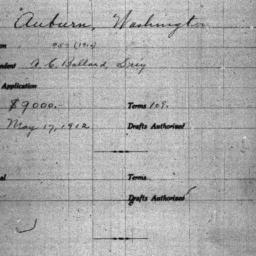 Auburn, Washington
on 957 (1910)
ndent A. C. Ballard, Secy
Application
$9000.- Terms 10%.
May 17, 1912 Drafts Authorized
al Terms
Drafts Authorized